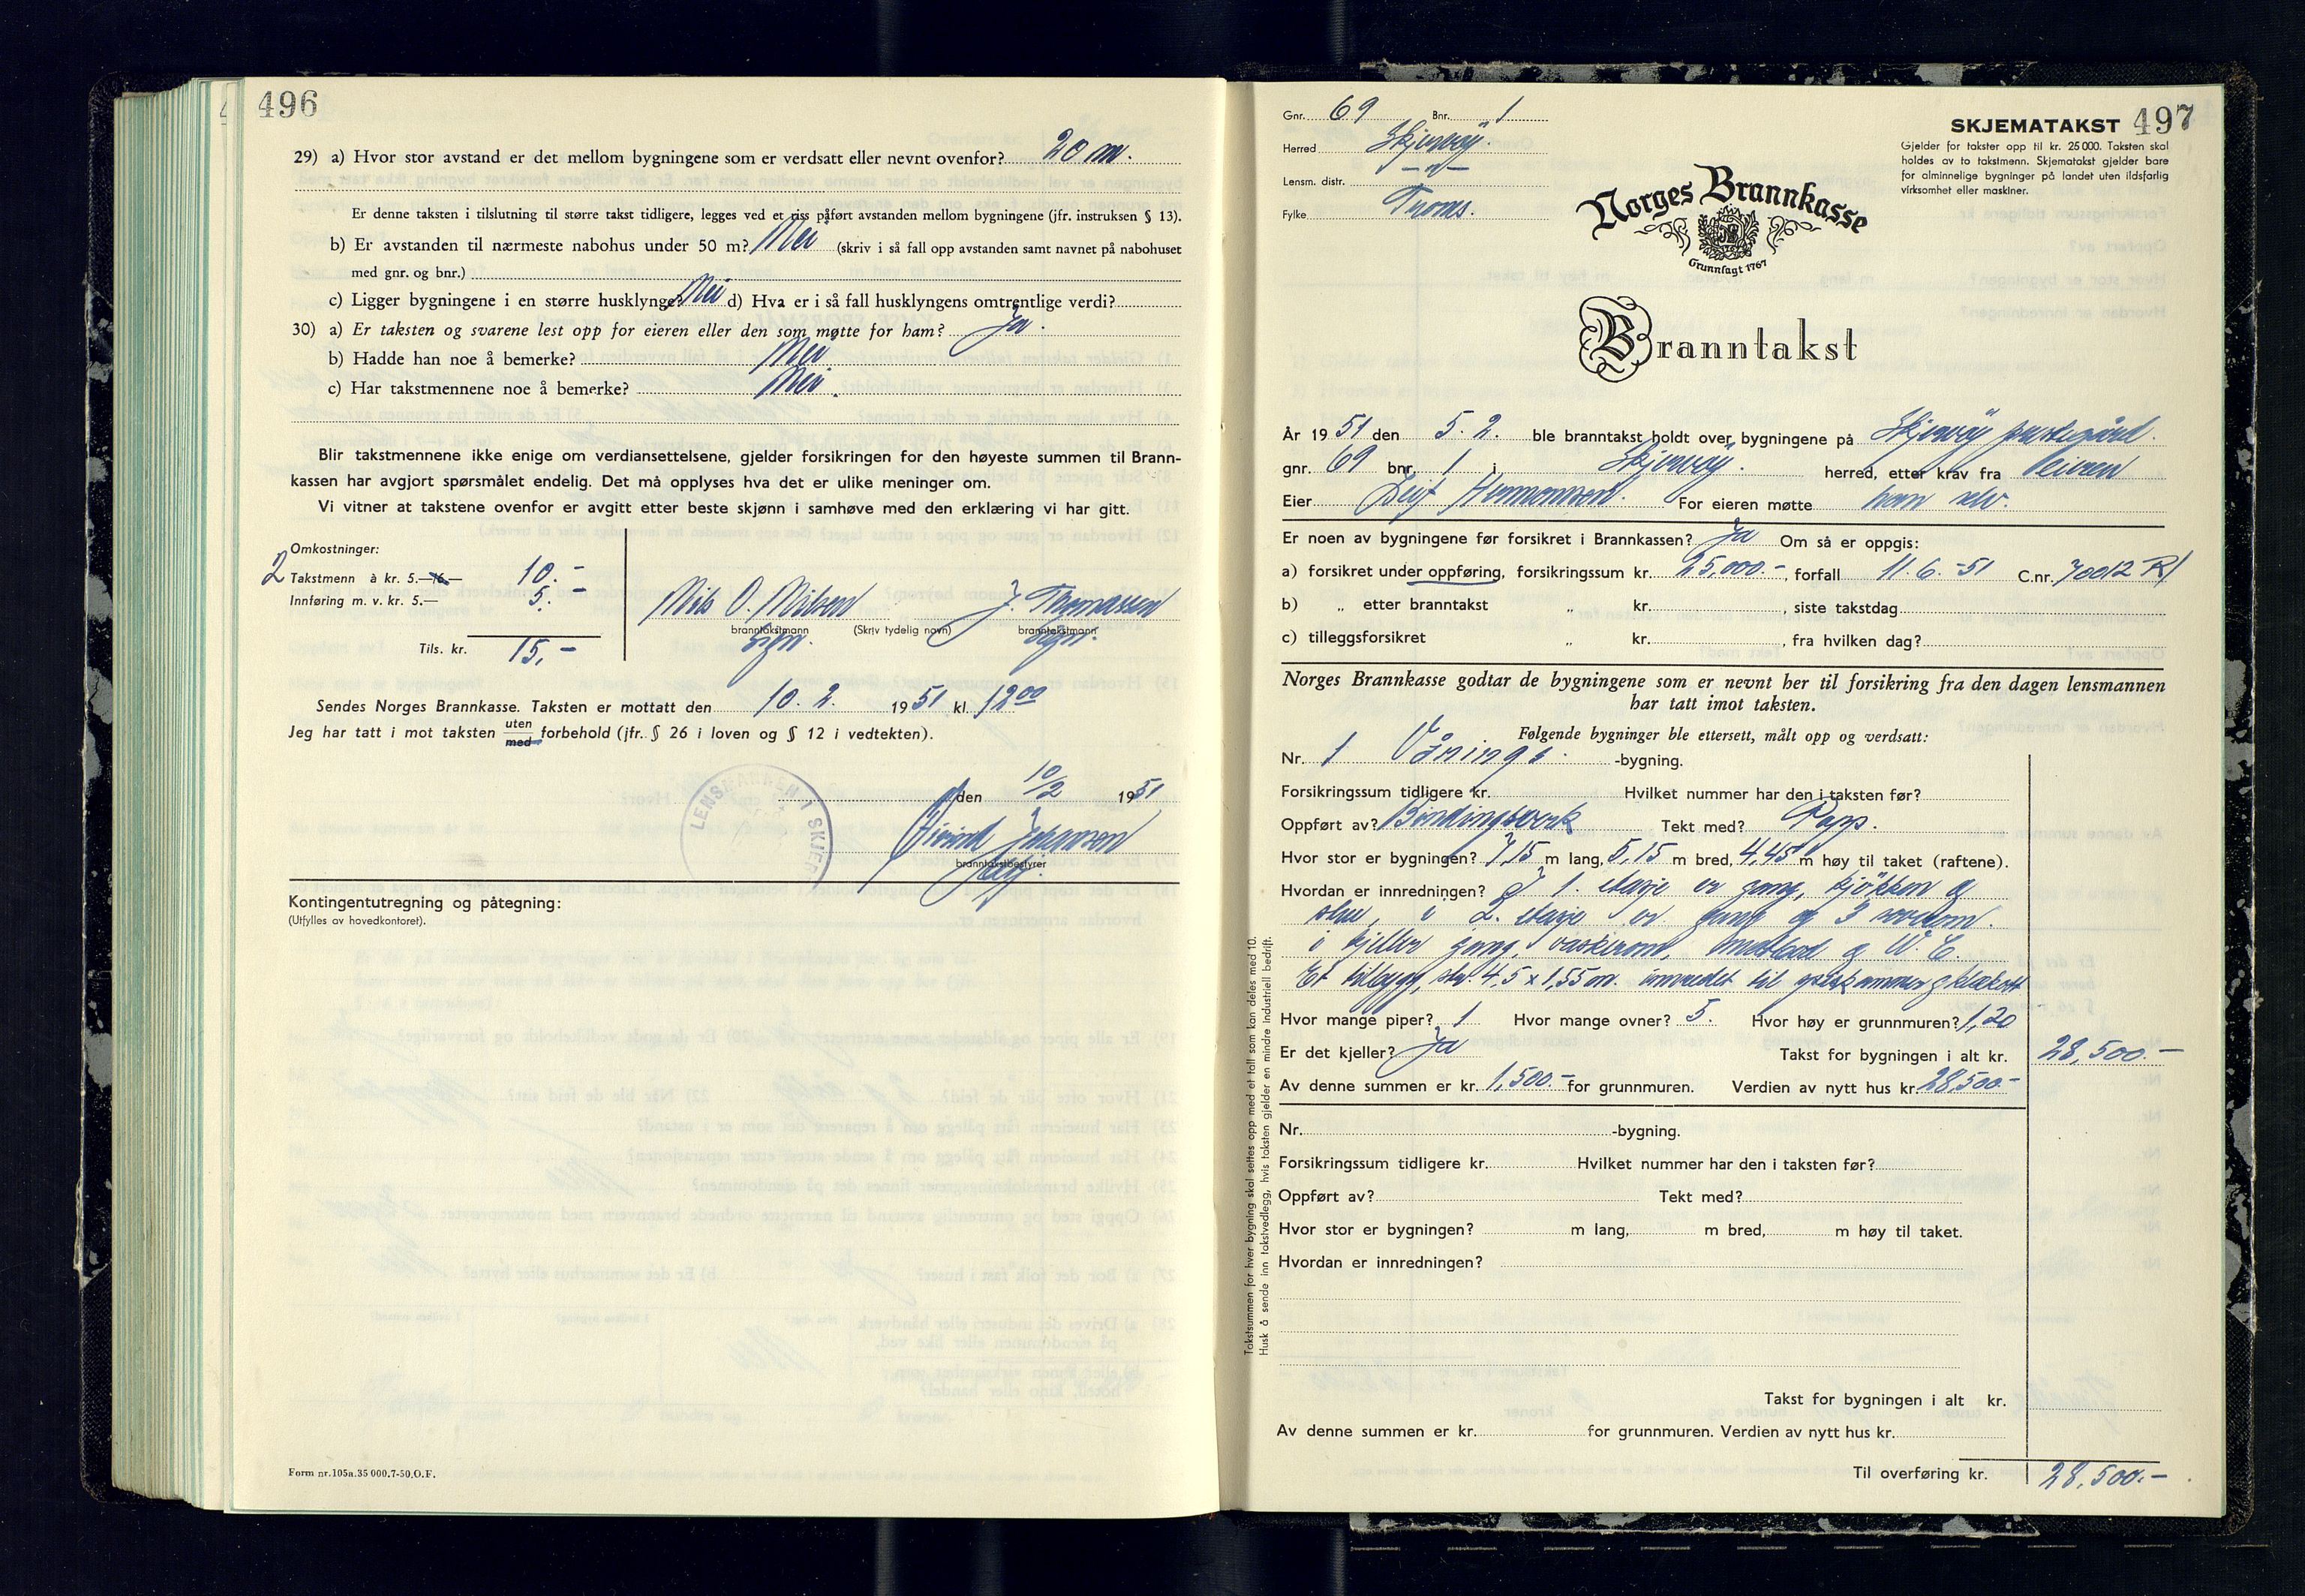 496
29) a) Hvor stor avstand er det mellom bygningene som er verdsatt eller nevnt ovenfor? 20 m.
Er denne taksten i tilslutning til større takst tidligere, legges ved et riss påført avstanden mellom bygningene (jfr. instruksen § 13).
b) Er avstanden til nærmeste nabohus under 50 m? Nei (skriv i så fall opp avstanden samt navnet på nabohuset
med gnr. og bnr.)
c) Ligger bygningene i en større husklynge? Nei d) Hva er i så fall husklyngens omtrentlige verdi?
30) a) Er taksten og svarene lest opp for eieren eller den som møtte for ham? Ja.
b) Hadde han noe å bemerke? Nei
c) Har takstmennene noe å bemerke? Nei.
Blir takstmennene ikke enige om verdiansettelsene, gjelder forsikringen for den høyeste summen til Brann-
kassen har avgjort spørsmålet endelig. Det må opplyses hva det er ulike meninger om.
Vi vitner at takstene ovenfor er avgitt etter beste skjønn i samhøve med den erklæring vi har gitt.
Omkostninger:
2 Takstmenn à kr. 5.— 10.-
Innføring m. v. kr. 5.— 5.-
Tils. kr. 15,-
Nils O. Nilsen J. Thomassen
branntakstmann (Skriv tydelig navn) branntakstmann
sign. sign.
Sendes Norges Brannkasse. Taksten er mottatt den 10. 2. 1951 kl. 12 00
Jeg har tatt i mot taksten uten med forbehold (jfr. § 26 i loven og § 12 i vedtekten).
LENSMANNEN I SKJER
den 10/2 1951
Eivind Johansen
branntakstbestyrer
Kontingentutregning og påtegning:
(Utfylles av hovedkontoret).
Form nr. 105a. 35 000. 7-50. O. F.
Gnr. 69 Bnr. 1
Herred Skjervøy.
Lensm. distr. -"-
Fylke Troms.
SKJEMATAKST 497
Gjelder for takster opp til kr. 25 000. Taksten skal
holdes av to takstmenn. Skjematakst gjelder bare
for alminnelige bygninger på landet uten ildsfarlig
virksomhet eller maskiner.
Norges Brannkasse
Grunnlagt 1767
Branntakst
År 1951 den 5. 2. ble branntakst holdt over bygningene på Skjervøy prestegård.
gnr. 69 bnr. 1 i Skjervøy. herred, etter krav fra eieren
Eier Leif Hermansen. For eieren møtte han selv.
Er noen av bygningene før forsikret i Brannkassen? Ja Om så er oppgis:
a) forsikret under oppføring, forsikringssum kr. 25,000.-, forfall 11. 6. -51 C.nr. 70012 R/
b) „ etter branntakst „ kr. , siste takstdag
c) tilleggsforsikret „ kr. , fra hvilken dag?
Norges Brannkasse godtar de bygningene som er nevnt her til forsikring fra den dagen lensmannen
har tatt imot taksten.
Følgende bygninger ble ettersett, målt opp og verdsatt:
Nr. 1 Vånings -bygning.
Forsikringssum tidligere kr. Hvilket nummer har den i taksten før?
Oppført av? Bindingsverk Tekt med? Papp.
Hvor stor er bygningen? 7,15 m lang, 5,15 m bred, 4,45 m høy til taket (raftene).
Hvordan er innredningen? I 1. etasje er gang, kjøkken og
stue, i 2. etasje er gang og 3 soverom.
i kjeller gang, vaskerom, matbod og W. C.
Et tilbygg, str. 4,5 x 1,55 m. innredet til
Hvor mange piper? 1 Hvor mange ovner? 5. Hvor høy er grunnmuren? 1,20
Er det kjeller? Ja Takst for bygningen i alt kr. 28,500.-
Av denne summen er kr. 1,500.- for grunnmuren. Verdien av nytt hus kr. 28,500.-
Nr. -bygning.
Forsikringssum tidligere kr. Hvilket nummer har den i taksten før?
Oppført av? Tekt med?
Hvor stor er bygningen? m lang, m bred, m høy til taket.
Hvordan er innredningen?
Takst for bygningen i alt kr.
Av denne summen er kr. for grunnmuren. Verdien av nytt hus kr.
Til overføring kr. 28,500.-
Takstsummen for hver bygning skal settes opp med et tall som kan deles med 10.
Husk å sende inn takstvedlegg, hvis taksten gjelder en mindre industriell bedrift.